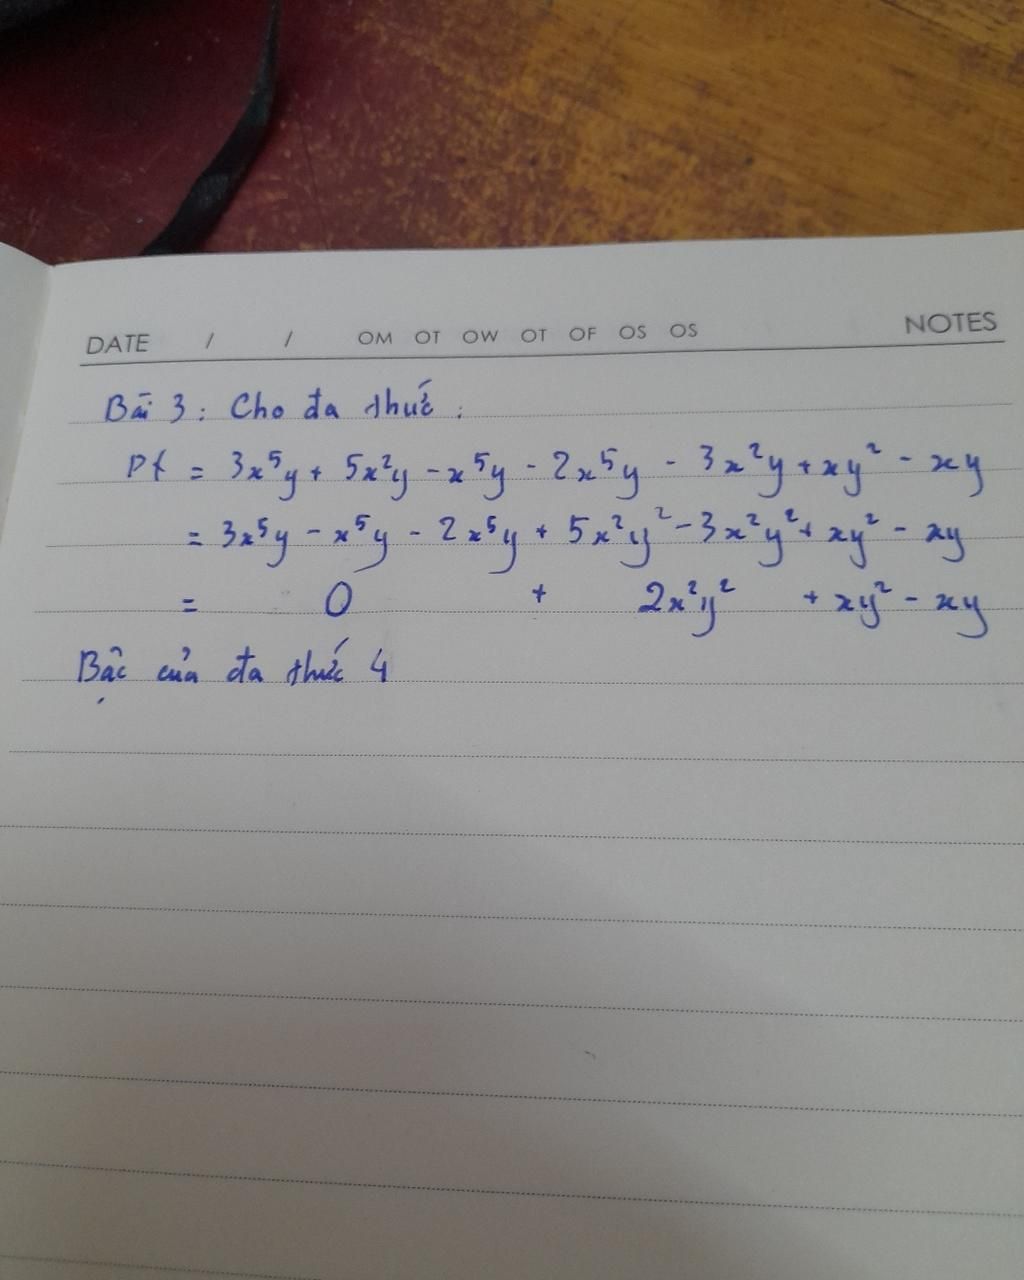 DATE / / OM OT OW OT OF OS OS NOTES
Bài 3: Cho đa thức:
Pt = 3x⁵y + 5x²y - x⁵y - 2x⁵y - 3x²y + xy² - xy
= 3x⁵y - x⁵y - 2x⁵y + 5x²y² - 3x²y² + xy² - xy
= 0 + 2x²y² + xy² - xy
Bậc của đa thức 4